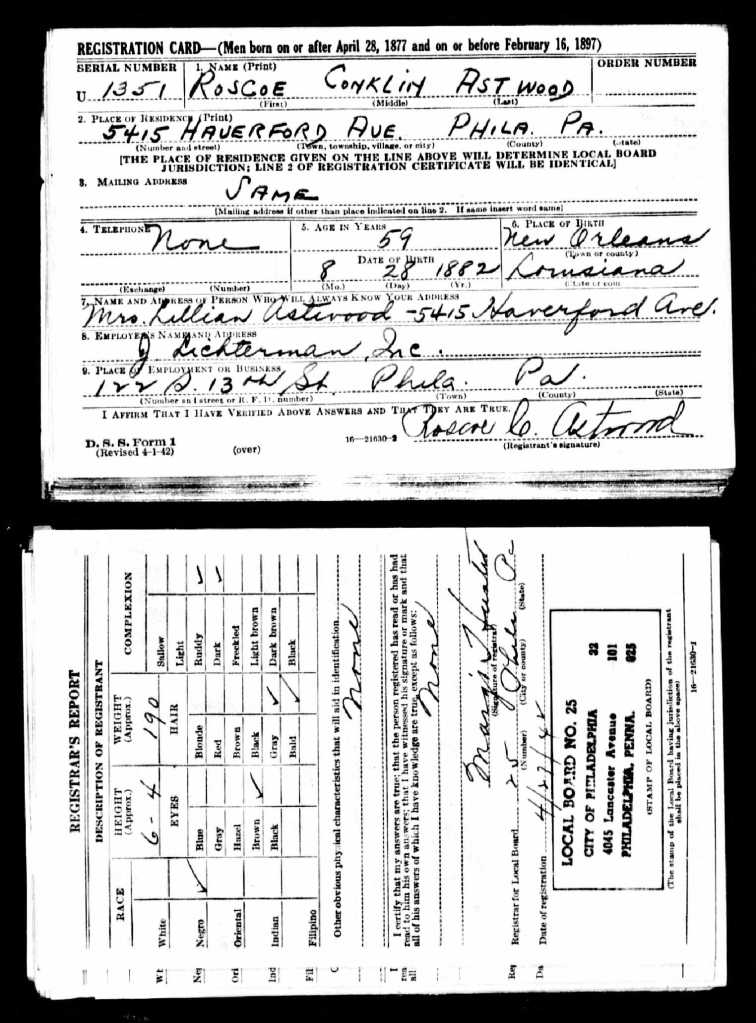 REGISTRATION CARD—(Men born on or after April 28, 1877 and on or before February 16, 1897)
SERIAL NUMBER 1. NAME (Print) ORDER NUMBER
U 1351 ROSCOE CONKLIN ASTWOOD
(First) (Middle) (Last)
2. PLACE OF RESIDENCE (Print)
5415 HAVERFORD AVE. PHILA. PA.
(Number and street) (Town, township, village, or city) (County) (State)
[THE PLACE OF RESIDENCE GIVEN ON THE LINE ABOVE WILL DETERMINE LOCAL BOARD
JURISDICTION; LINE 2 OF REGISTRATION CERTIFICATE WILL BE IDENTICAL]
3. MAILING ADDRESS
SAME
[Mailing address if other than place indicated on line 2. If same insert word same]
4. TELEPHONE 5. AGE IN YEARS 6. PLACE OF BIRTH
None 59 New Orleans
(Town or county)
DATE OF BIRTH
8 28 1882 Louisiana
(Exchange) (Number) (Mo.) (Day) (Yr.)
7. NAME AND ADDRESS OF PERSON WHO WILL ALWAYS KNOW YOUR ADDRESS
Mrs. Lillian Astwood - 5415 Haverford Ave.
8. EMPLOYER'S NAME AND ADDRESS
J. Lichterman, Inc.
9. PLACE OF EMPLOYMENT OR BUSINESS
122 S. 13th St. Phila. Pa.
(Number and street or R. F. D. number) (Town) (County) (State)
I AFFIRM THAT I HAVE VERIFIED ABOVE ANSWERS AND THAT THEY ARE TRUE.
Roscoe C. Astwood
D. S. S. Form 1
(Revised 4-1-42) (over) 16—21630-2 (Registrant's signature)
REGISTRAR'S REPORT
DESCRIPTION OF REGISTRANT
RACE HEIGHT (Approx.) WEIGHT (Approx.) COMPLEXION
White 6-4 190 Sallow
EYES HAIR Light
Negro ✓ Blue Blonde Ruddy ✓
Gray Red Dark ✓
Oriental Hazel Brown Freckled
Brown ✓ Black Light brown
Indian Black Gray ✓ Dark brown
Bald ✓ Black
Filipino
Other obvious physical characteristics that will aid in identification
None
I certify that my answers are true; that the person registered has read or has had
read to him his own answers; that I have witnessed his signature or mark and that
all of his answers of which I have knowledge are true, except as follows:
None
(Signature of registrar)
Registrar for Local Board 25 Phila Pa
(Number) (City or county) (State)
Date of registration 4/27/42
LOCAL BOARD NO. 25
CITY OF PHILADELPHIA 32
4045 Lancaster Avenue 101
PHILADELPHIA, PENNA. 025
(STAMP OF LOCAL BOARD)
(The stamp of the Local Board having jurisdiction of the registrant
shall be placed in the above space)
16—21630-1